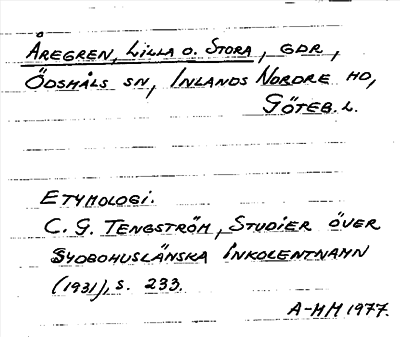 ÅREGREN, LILLA O. STORA, GDR,
ÖDSMÅLS SN, INLANDS NORDRE HD,
GÖTEB. L.
ETYMOLOGI.
C. G. TENGSTRÖM, STUDIER ÖVER
SYDBOHUSLÄNSKA INKOLENTNAMN
(1931), S. 233.
A-MM 1977.